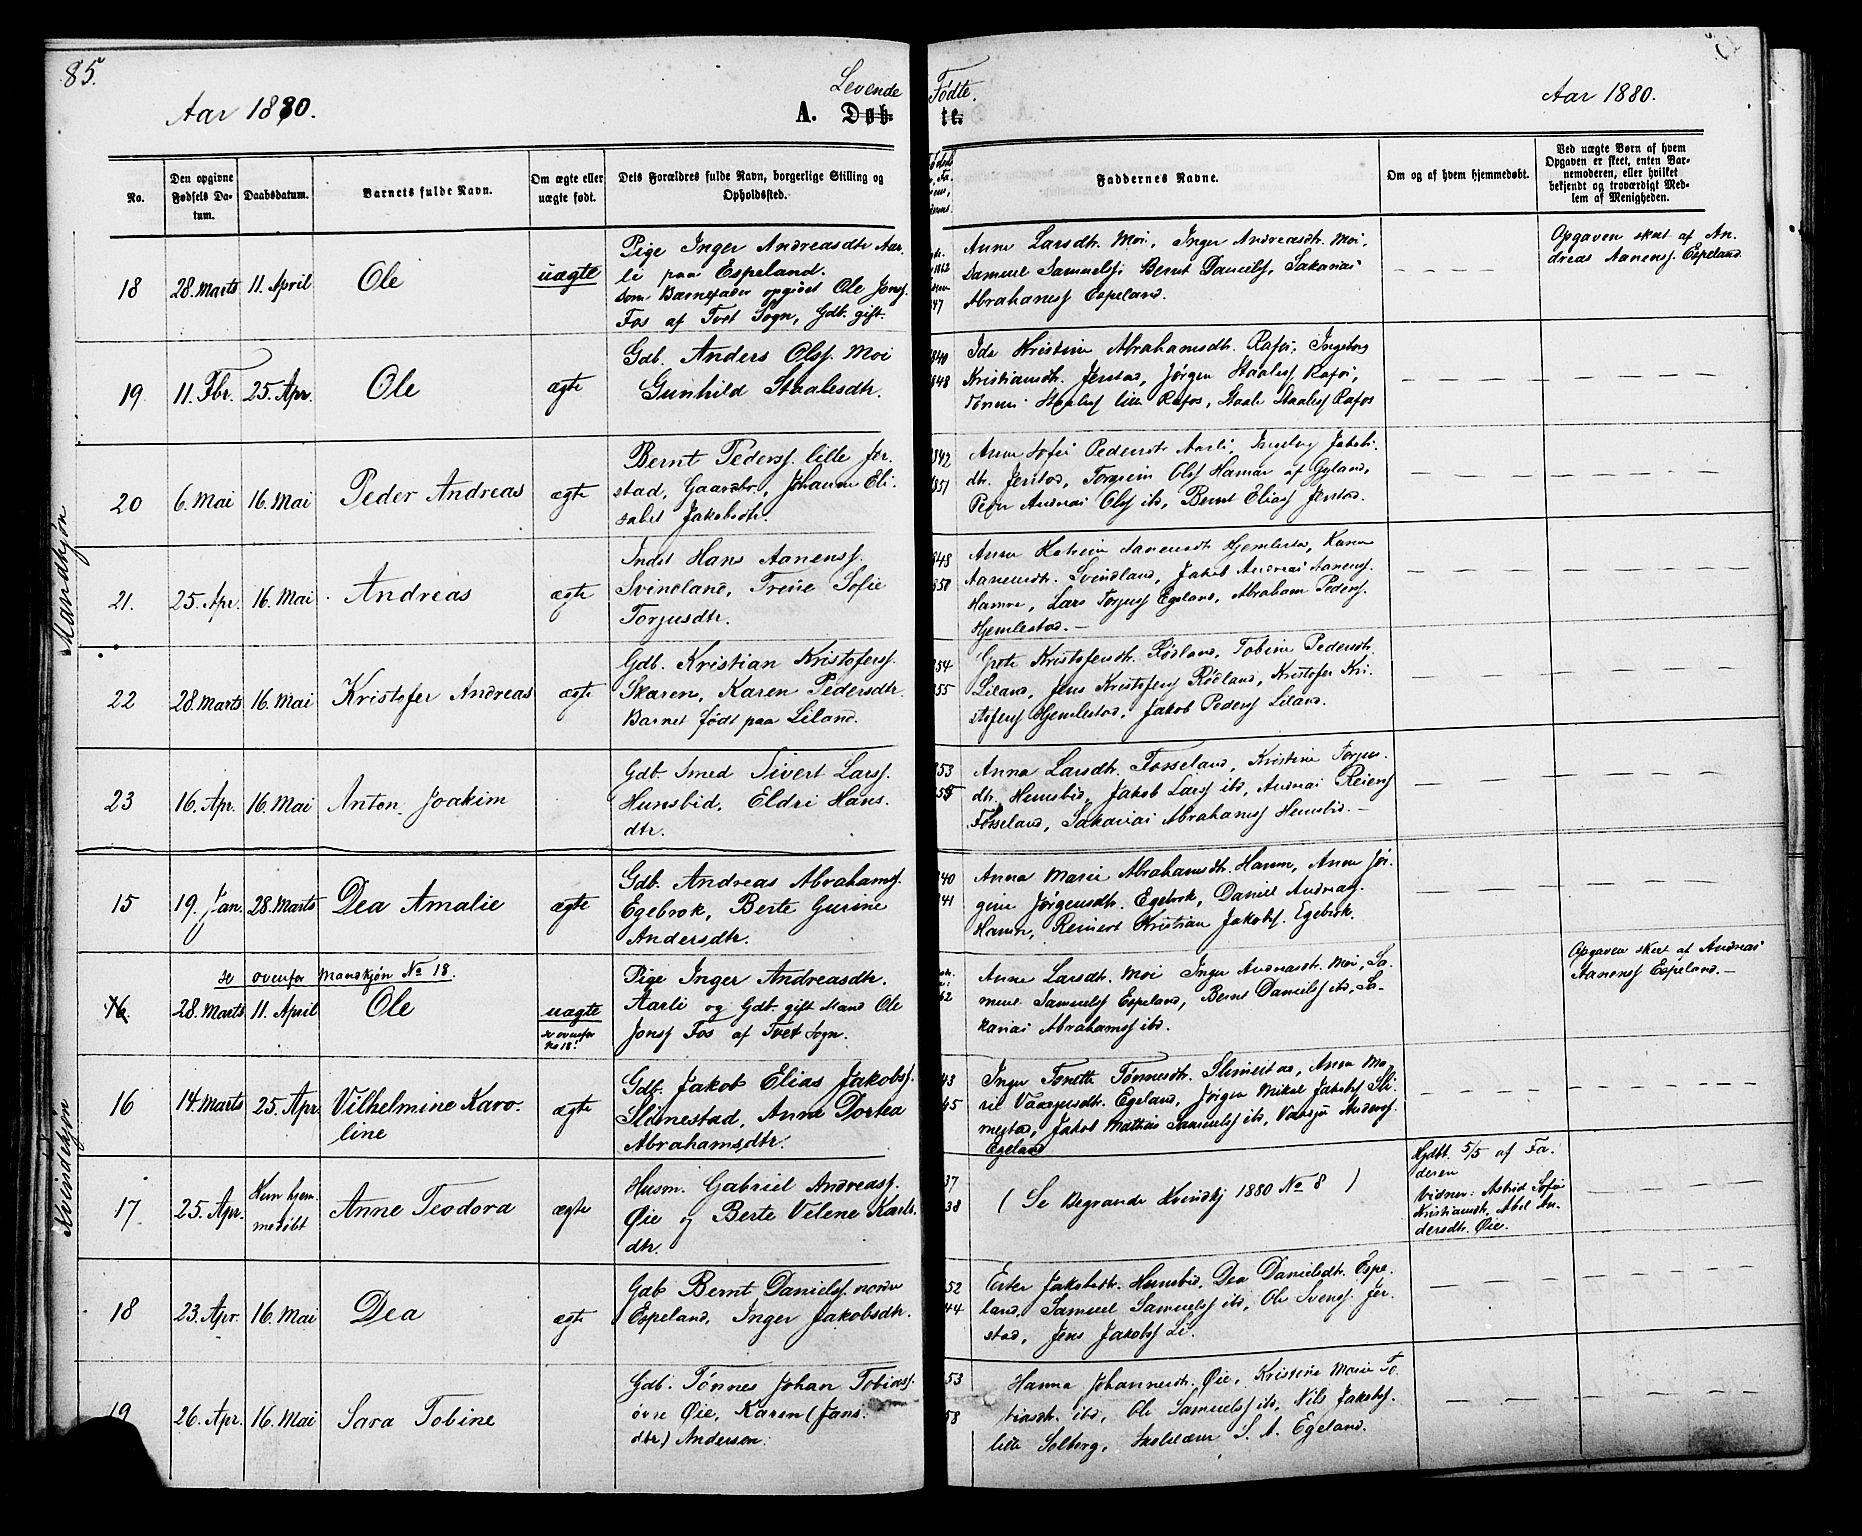 85.
Aar 1880.
Levende Fødte.
A. Døb- te.
Aar 1880.
No.
Den opgivne Fødsels Datum.
Daabsdatum.
Barnets fulde Navn.
Om ægte eller uægte født.
Dets Forældres fulde Navn, borgerlige Stilling og Opholdssted.
Faddernes Navne.
Om og af hvem hjemmedøbt.
Ved uægte Børn af hvem Opgaven er skeet, enten Barnemoderen, eller hvilket bekjendt og troværdigt Medlem af Menigheden.
Mandkjøn
18 28. Marts 11. April Ole uægte
Pige Inger Andreasdtr Aar-
li paa Espeland.
som Barnefader opgivet Ole Jonsf.
Fos af Tvet Sogn, Gdb. gift.
Anne Larsdtr. Moi, Inger Andreasdtr. Moi,
Samuel Samuelsf. Bernt Danielsf, Sakarias
Abrahamsf Espeland.
Opgaven skeet af An-
dreas Aanensf. Espeland.
19 11. Fbr. 25. Apr. Ole ægte
Gdb. Anders Olsf. Moi
Gunhild Staalesdtr.
Ida Kristine Abrahamsdtr. Rafos, Ingeborg
Kristiansdtr. Jerstad, Jørgen Staalesf Rafos,
Tønnes Staalesf lille Rafos, Staale Staalesf Rafos
20 6. Mai 16. Mai Peder Andreas ægte
Bernt Pedersf. lille Jer-
stad, Gaardbr., Johanne Eli-
sabet Jakobsdtr.
Anne Sofie Pedersdtr Aarli, Ingeborg Jakobs-
dtr. Jerstad, Torgrim Olsf Hamar af Gyland,
Peder Andreas Olsf ibd, Bernt Eliasf Jerstad.
21. 25. Apr. 16. Mai Andreas ægte
Indst Hans Aanensf.
Svindland, Trine Sofie
Torjusdtr.
Anne Katrine Aanensdtr Hjemlestad, Karen
Aanensdtr. Svindland, Jakob Andreas Aanensf.
Hamre, Lars Torjusf Egeland, Abraham Pedersf.
Hjemlestad. —
22 28. Marts 16. Mai Kristofer Andreas ægte
Gdb. Kristian Kristofersf.
Skaren, Karen Pedersdtr.
Barnet født paa Liland.
Grete Kristofersdtr. Rødland, Tobine Pedersdtr.
Liland, Jens Kristofersf Rødland, Kristofer Kri-
stofersf Hjemlestad, Jakob Pedersf Liland.
23 16. Apr. 16. Mai Anton Joakim
Gdb. Smed Sivert Larsf.
Hunsbid, Eldri Hans-
dtr.
Anna Larsdtr. Fosseland, Kristine Torjus-
dtr. Hunsbid, Jakob Larsf ibd, Andreas Reiersf
Fosseland, Sakarias Abrahamsf Hunsbid. —
Kvindekjøn
15 19. Jan. 28. Marts Dea Amalie ægte
Gdb. Andreas Abrahamsf.
Egebrok, Berte Gurine
Andersdtr.
Anna Marie Abrahamsdtr. Hamre, Anne Jør-
gine Jørgensdtr. Egebrok, Daniel Andreasf.
Hamre, Reinert Kristian Jakobsf. Egebrok.
se ovenfor Mandkjøn No 18.
16. 28. Marts 11. April Ole uægte
se ovenfor
No 18.
Pige Inger Andreasdtr.
Aarli og Gdb. gift Mand Ole
Jonsf Fos af Tvet Sogn.
Anne Larsdtr. Moi Inger Andreasdtr. Moi, Sa-
muel Samuelsf Espeland, Bernt Danielsf ibd, Sa-
karias Abrahamsf ibd.
Opgaven skeet af Andreas
Aanensf Espeland. —
16 14. Marts 25. Apr. Vilhelmine Karo-
line ægte
Gdb. Jakob Elias Jakobsf.
Slimestad, Anne Dortea
Abrahamsdtr.
Inger Tonette Tønnesdtr. Slimestad, Anne Ma-
ril Vaarjusdtr. Egeland, Jørgen Mikal Jakobsf Sli-
mestad, Jakob Mathias Samuelsf ibd, Vaarju Andersf.
Egeland
17 25. Apr. Kun hjem-
medøbt Anne Teodora ægte
Husm. Gabriel Andreasf.
Øie og Berte Velene Karls-
dtr.
( Se Begravede Kvindkj 1880 No 8 )
Hjdbt. 5/5 af Fa-
deren
Vidner: Astrid Sofie
Kristiansdtr. Abel An-
dersdtr. Øie.
18 23. Apr. 16. Mai Dea ægte
Gdb Bernt Danielsf. nordre
Espeland, Inger Jakobsdtr.
Ester Jakobsdtr. Hunsbid, Dea Danielsdtr. Espe-
land, Samuel Samuelsf ibd, Ole Svensf. Jer-
stad, Jens Jakobsf Li.
19 26. Apr. 16. Mai Sara Tobine
Gdb. Tønnes Johan Tobiasf.
øvre Øie, Karen (Jans-
dtr) Andersen.
Hanna Johannesdtr. Øie, Kristine Marie To-
biasdtr. ibd, Ole Samuelsf ibd, Nils Jakobsf.
lille Solberg, Skolelærer S. A. Egeland.